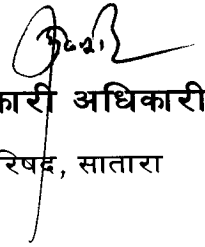 कारी अधिकारी
रिषद, सातारा